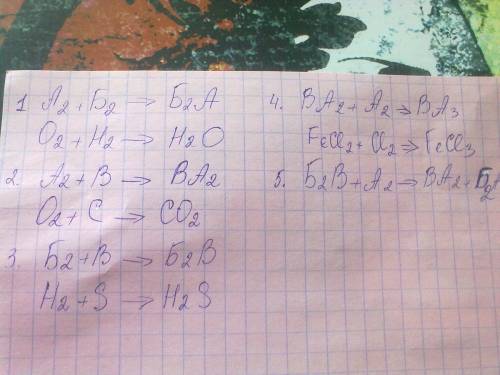 1 А2 + Б2 → Б2А
О2 + Н2 → Н2О
2. А2 + В → ВА2
О2 + С → СО2
3. Б2 + В → Б2В
Н2 + S → Н2S
4. ВА2 + А2 → ВА3
FeCl2 + Cl2 → FeCl3
5. Б2В + А2 → ВА2 + Б2А